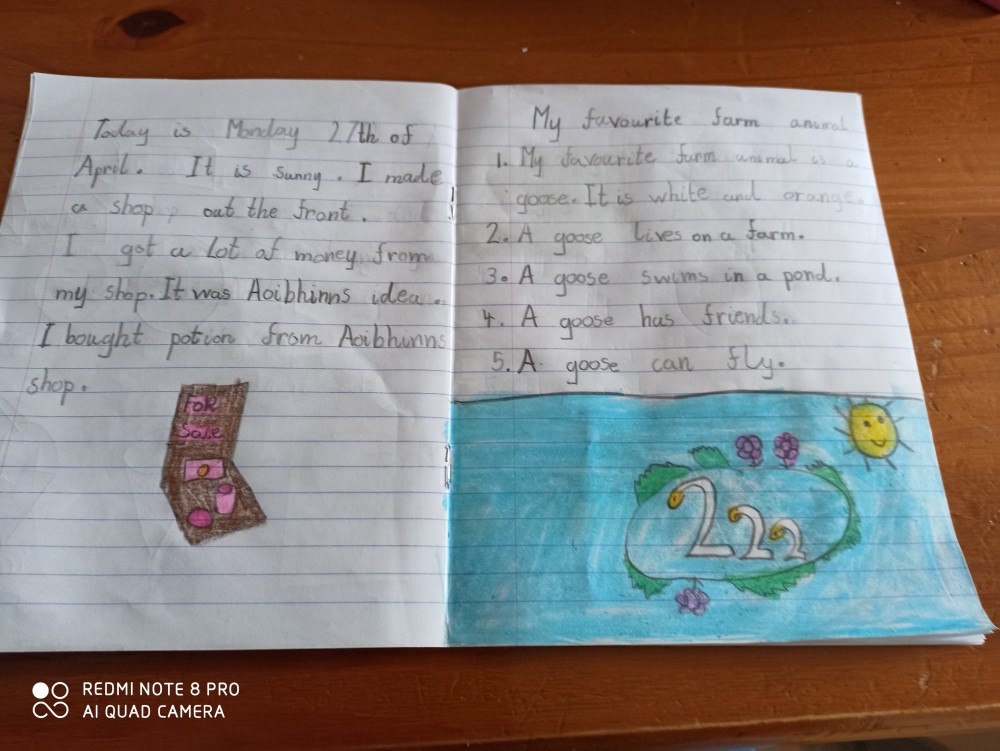 Today is Monday 27th of
April. It is sunny. I made
a shop out the front.
I got a lot of money from
my shop. It was Aoibhinns idea.
I bought potion from Aoibhinns
shop.
FOR
Sale
My favourite farm animal
1. My favourite farm animal is a
goose. It is white and orange.
2. A goose lives on a farm.
3. A goose swims in a pond.
4. A goose has friends.
5. A goose can fly.
REDMI NOTE 8 PRO
AI QUAD CAMERA